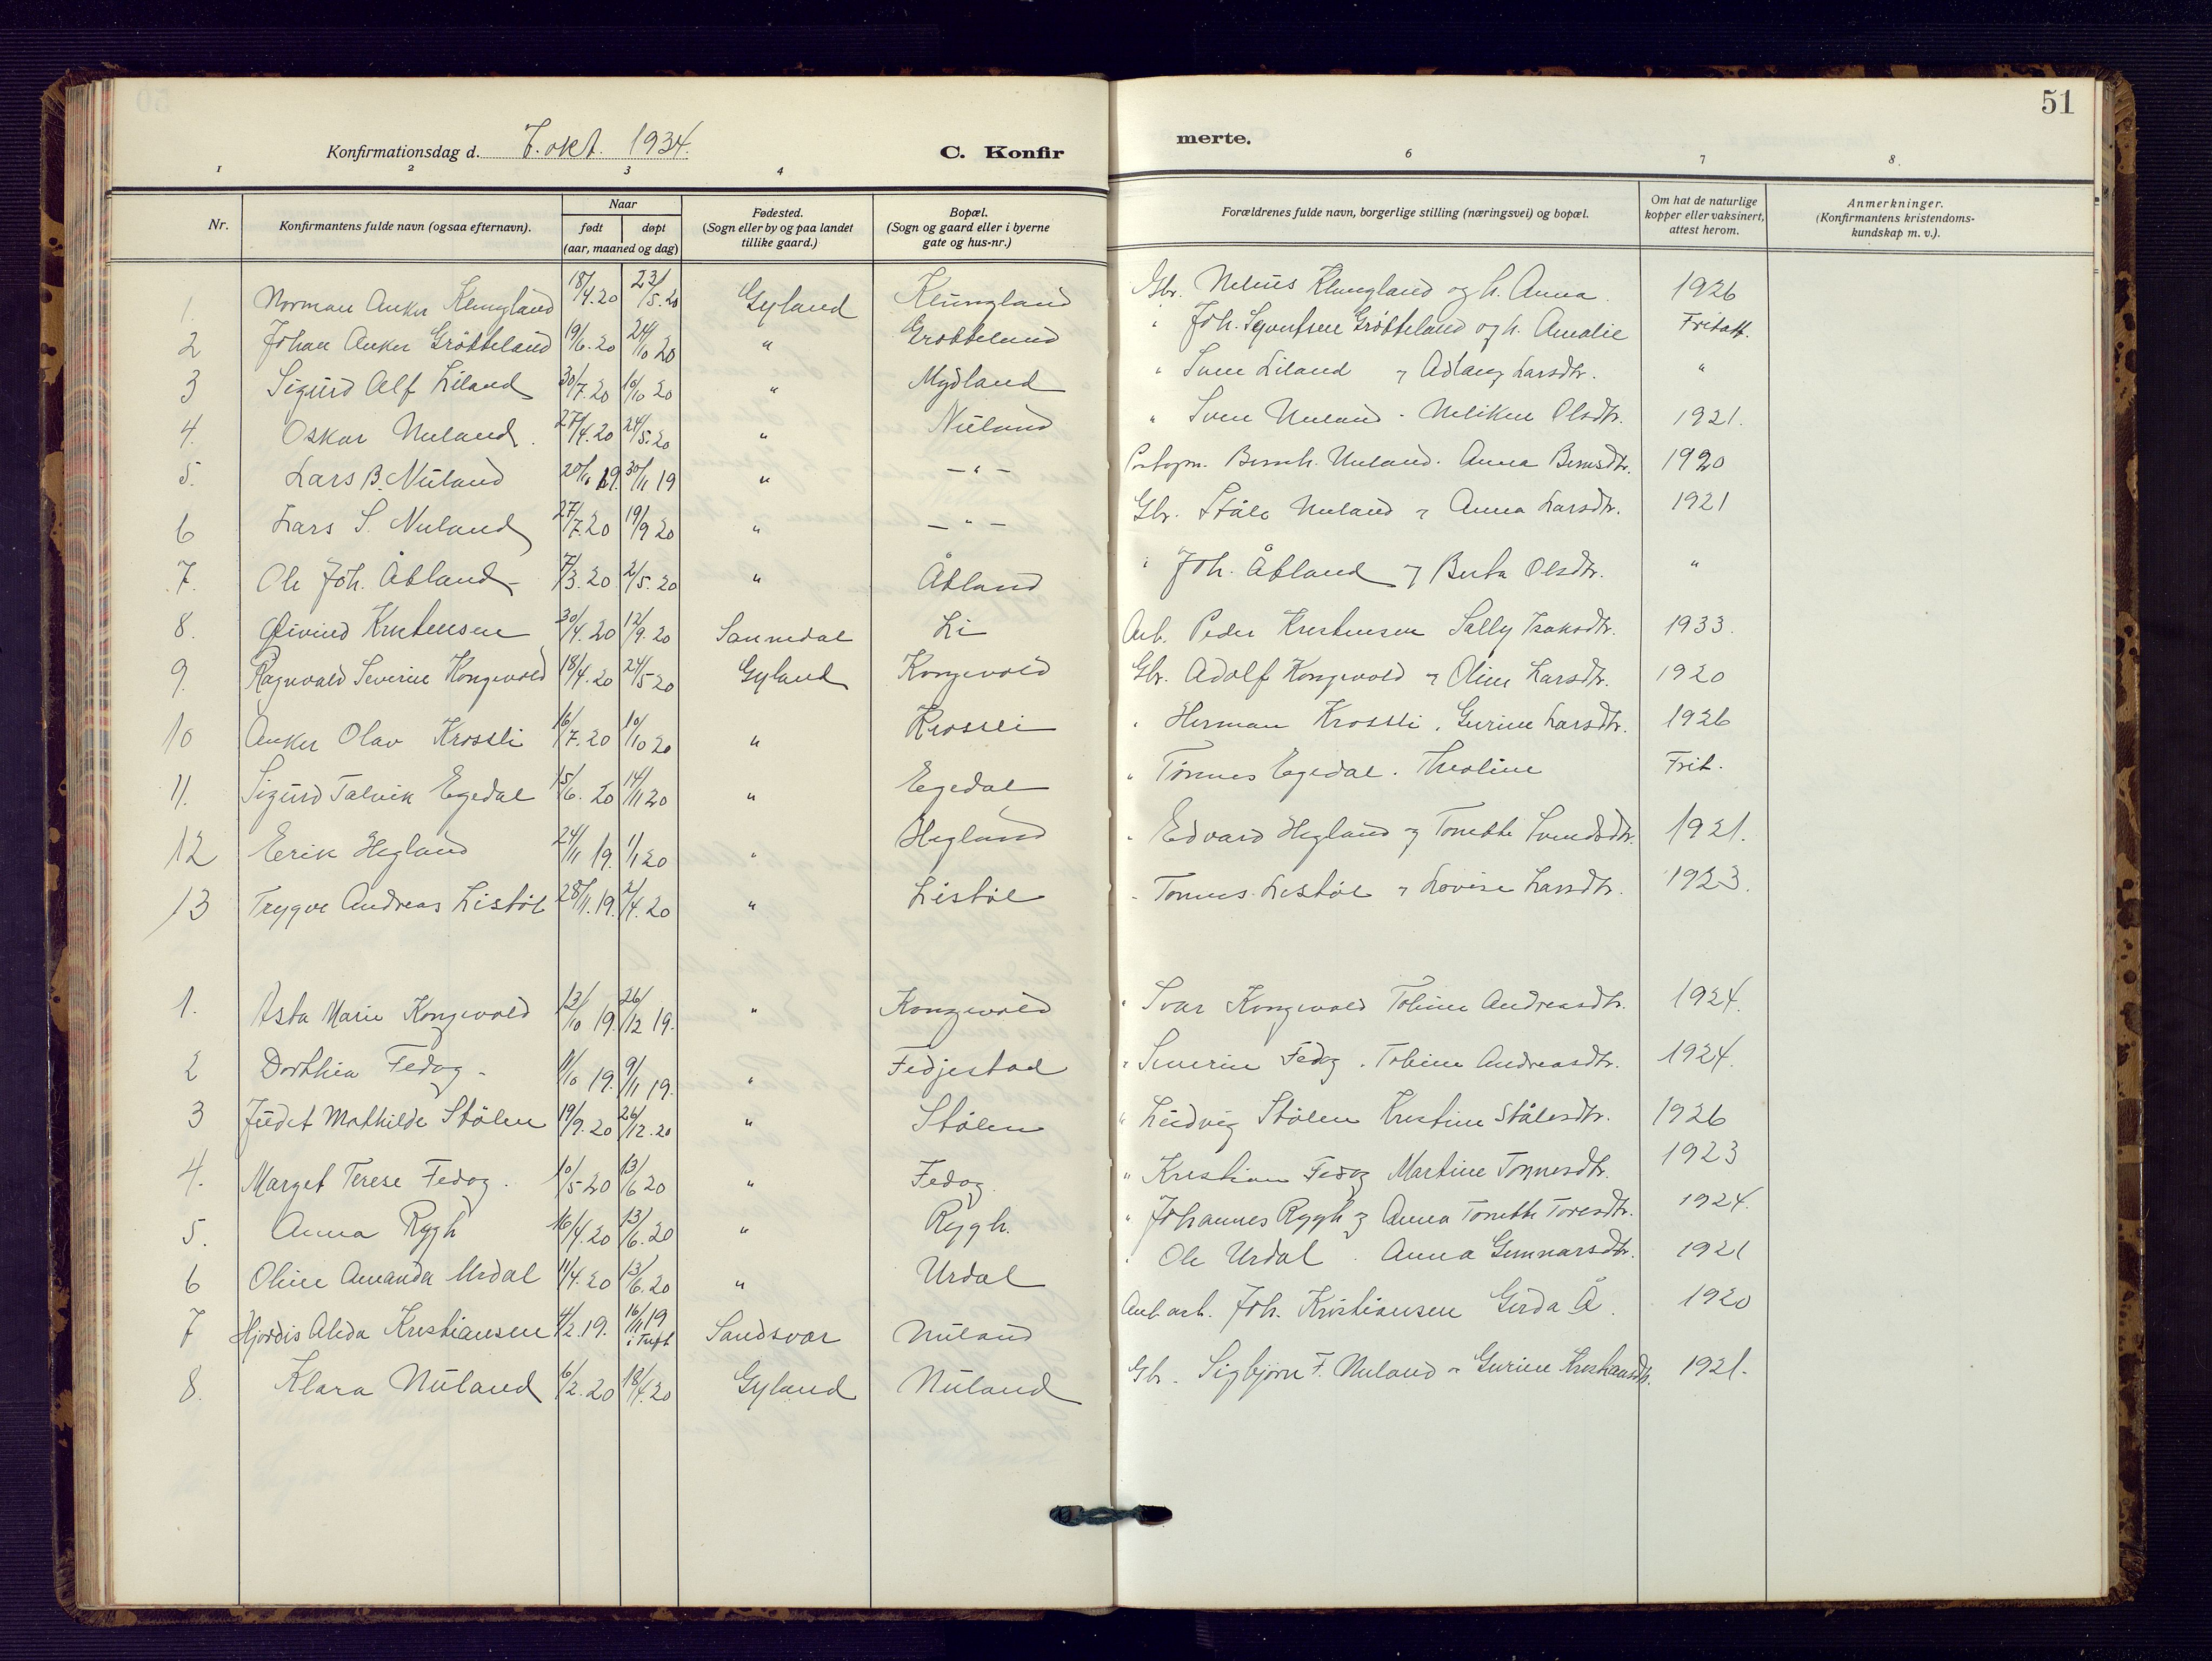 51
Konfirmationsdag d. 7. okt. 1934. C. Konfirmerte.
1 2 3 4 6 7 8.
Nr. Konfirmantens fulde navn (ogsaa efternavn). Naar født døpt (aar, maaned og dag) Fødested. (Sogn eller by og paa landet tillike gaard.) Bopæl. (Sogn og gaard eller i byerne gate og hus-nr.) Forældrenes fulde navn, borgerlige stilling (næringsvei) og bopæl. Om hat de naturlige kopper eller vaksinert, attest herom. Anmerkninger. (Konfirmantens kristendomskundskap m. v.).
1. Norman Anker Klungland 18/4.20 23/5.20 Gyland Klungland Gbr. Nelius Klungland og h. Anna. 1926
2 Johan Anker Grötteland 19/6.20 24/10 20 " Grötteland " Joh. Grötteland og h. Amalie Fritatt.
3 Sigurd Alf Liland 30/7.20 10/10 20 " Mydland " Sven Liland Adlaug Larsdtr. "
4. Oskar Nuland. 27/4.20 24/5.20 " Nuland " Sven Nuland - Olsdtr. 1921.
5. Lars B. Nuland 20/11 19. 30/11 19 " — " — Bernh. Nuland. Anna Berntsdtr. 1920
6 Lars S. Nuland 27/7.20 19/9 20 " — " — Gbr. Ståle Nuland Anna Larsdtr. 1921
7. Ole Joh. Åtland 7/3.20 2/5.20 " Åtland " Joh. Åtland Berta Olsdtr. "
8. Øivind Kristensen 30/4.20 12/9.20 Sannidal Li Arb. Peder Kristensen Sally Isaksdtr. 1933.
9. Ragnvald Severin Kongevold 18/4.20 24/5 20 Gyland Kongevold Gbr. Adolf Kongevold Oline Larsdtr. 1920
10 Anker Olav Krossli 16/7.20 10/10 20 " Krossli " Herman Krossli. Gurine Larsdtr. 1926
11. Sigurd Talvik Egedal 15/6. 20 14/11 20 " Egedal " Tönnes Egedal. Theoline Frit.
12 Erik Hegland 24/11 19. 1/1 20 " Hegland " Edvard Hegland og Tonette Svendsdtr. 1921.
13 Trygve Andreas Listöl 28/11.19. 2/4.20 " Listöl " Tönnes Listöl Lovise Larsdtr. 1923.
1. Asta Marie Kongevold 13/10 19. 26/12 19. " Kongevold " Ivar Kongevold Tobine Andreasdtr. 1924.
2 Dorthia Fedog - 11/10 19. 9/11 19. " Fedjestad " Severin Fedog. Tobine Andreasdtr. 1924.
3 Judet Mathilde Stölen 19/9.20 26/12.20 " Stölen " Ludvig Stölen Kristine Stålesdtr. 1926
4. Marget Terese Fedog. 10/5 20 13/6 20 " Fedog " Kristian Fedog Martine Tönnesdtr. 1923
5. Anna Rygh 16/4.20 13/6.20 " Rygh. " Johannes Rygh og Anna Tonette Toresdtr. 1924.
6 Oline Amanda Urdal 11/4.20 13/6.20 " Urdal " Ole Urdal. Anna Gunnarsdtr. 1921
7 Hjördis Alida Kristiansen 4/2.19. 16/11 19 i Tuft Sandsvær Nuland Anl.arb. Joh. Kristiansen Gerda Å. 1920
8. Klara Nuland 6/2.20 18/4.20 Gyland Nuland Gbr. Sigbjörn F. Nuland Gurine Kristiansdtr. 1921.